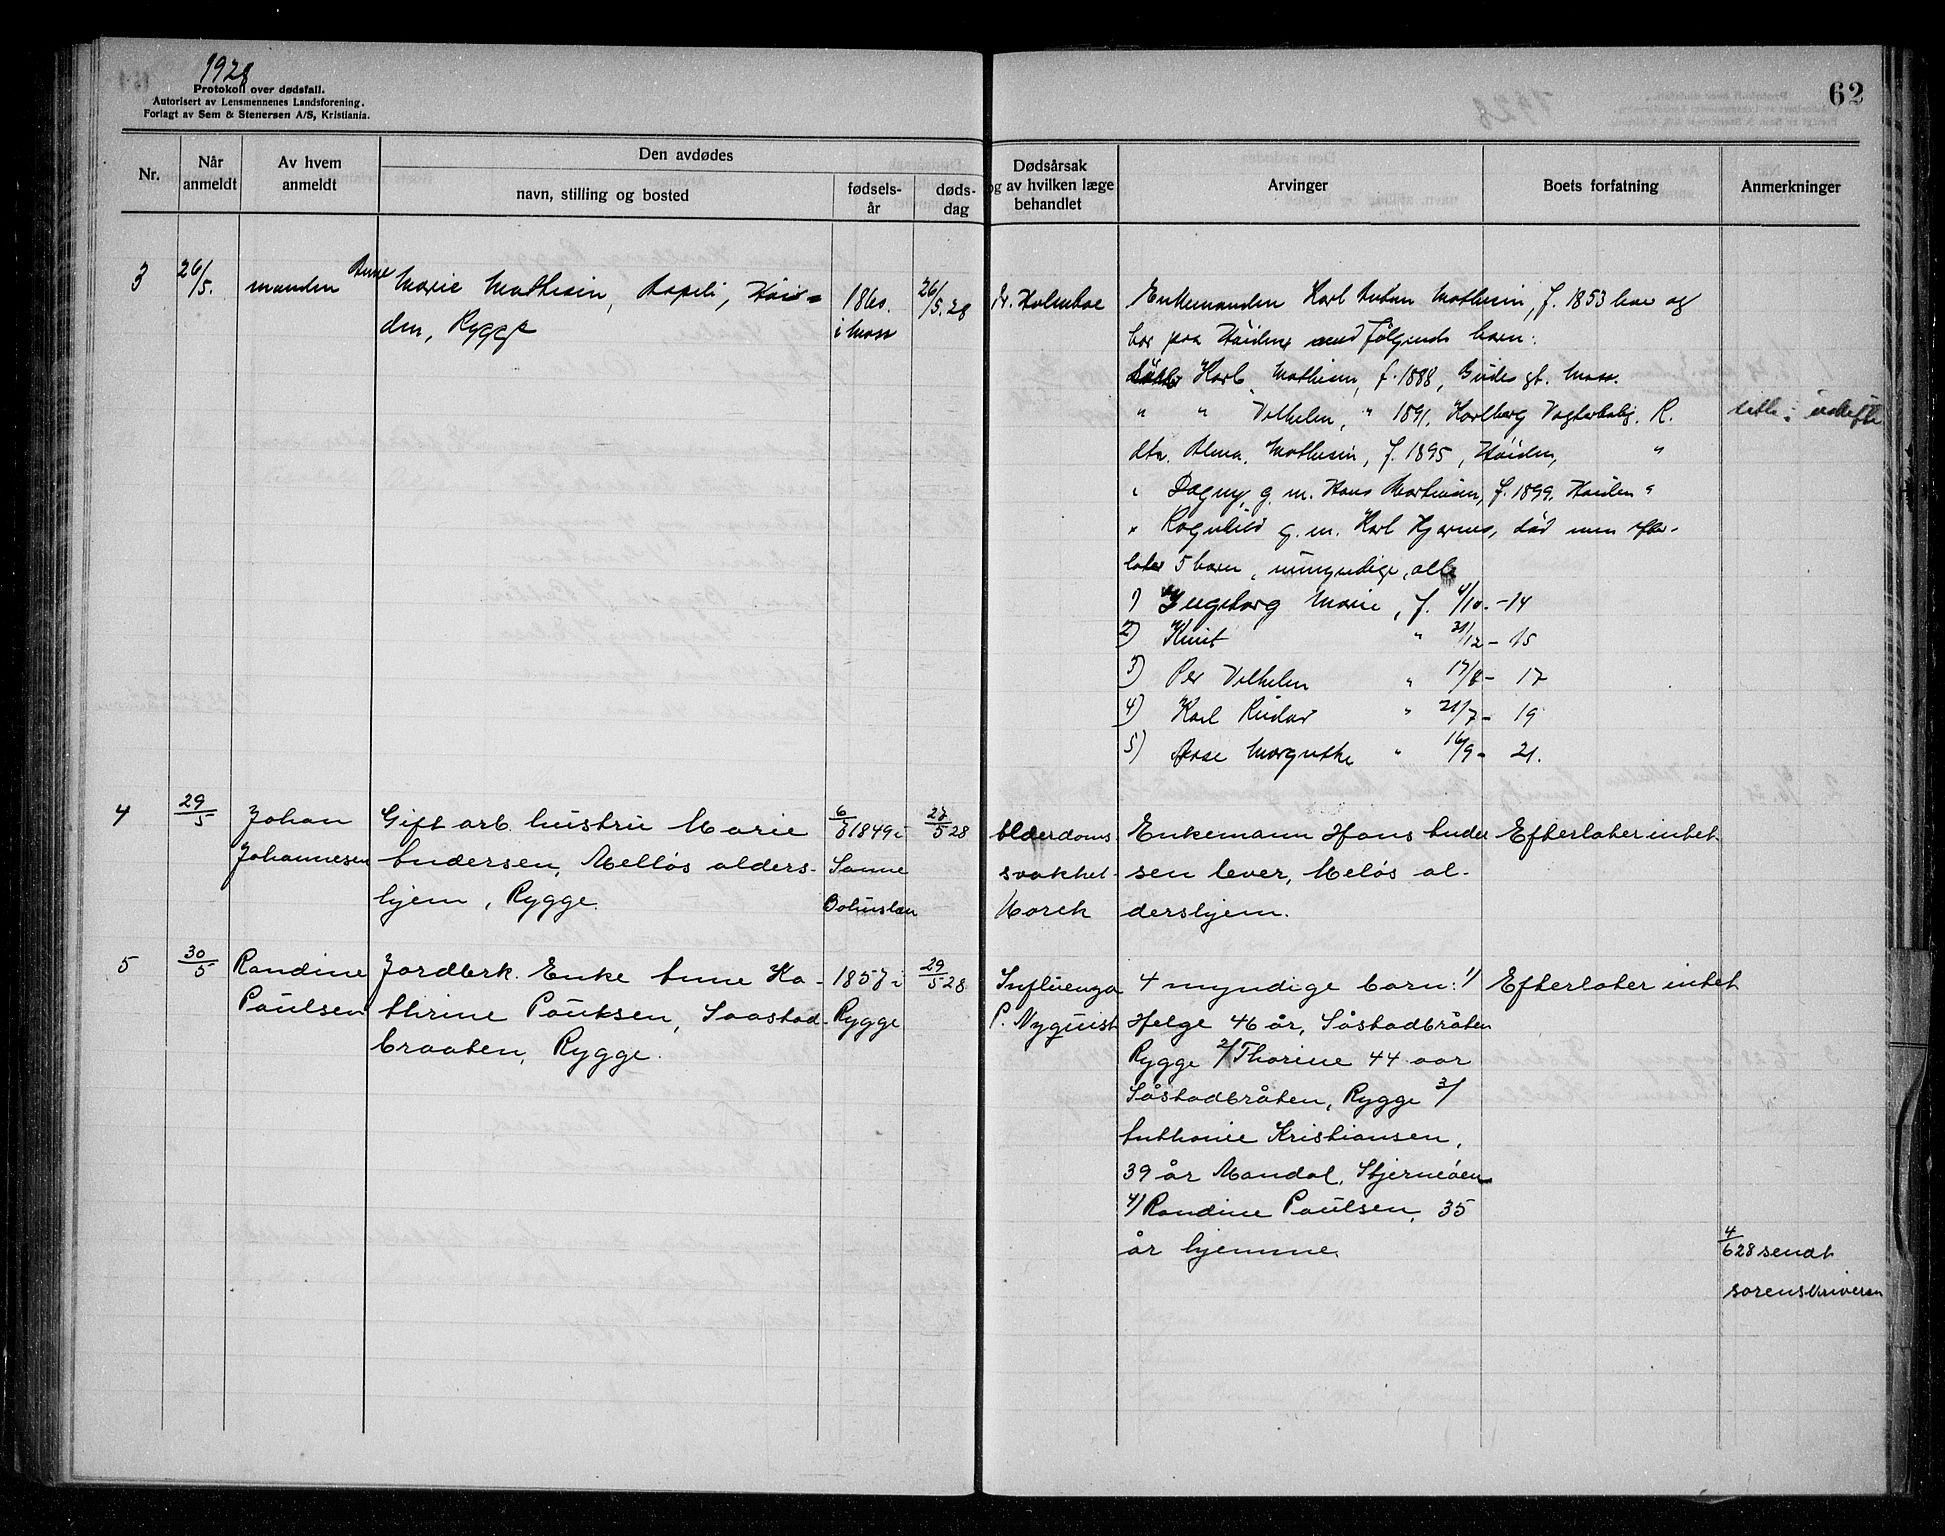 1928
Protokoll over dødsfall.
Autorisert av Lensmennenes Landsforening.
Forlagt av Sem & Stenersen A/S, Kristiania.
62
Nr.
Når anmeldt
Av hvem anmeldt
Den avdødes
navn, stilling og bosted
fødsels-år
døds-dag
Dødsårsak og av hvilken læge behandlet
Arvinger
Boets forfatning
Anmerkninger
3
26/5.
manden
Anne
Marie Mathesen,
den, Rygge
1860.
i Moss
26/5.28
Dr. Holmboe
Enkemanden Karl Anton Mathesen, f. 1853 lever og
bor paa Høiden med følgende barn:
Karl Mathesen, f. 1888, Gudes gt. Moss.
" " Vilhelm, " 1891, Karlberg Vogterbolig. R.
dtr. Alma Mathesen, f. 1895, Høiden, "
" Dagny, g. m. Hans Martinsen, f. 1899, Høiden "
" Ragnhild g. m. Karl Hjærnes, død men efter-
later 5 barn, umyndige, alle
1) Ingeborg Marie, f. 4/10. - 14
2) Knut " 31/12 - 15
3) Per Vilhelm " 17/8 - 17
4) Karl Reidar " 21/7 - 19
5) Aase Margrethe " 16/9 - 21.
uskifte
4
29/5
Johan
Johannesen
Gift arb. hustru Marie
Andersen, Melløs alders-
hjem, Rygge.
1849 i
Sanne
Bohuslen
27/5 28
Alderdoms
svakhet
Horck
Enkemann Hans Ander
sen lever, Meløs al-
dershjem.
Efterlater intet
5
30/5
Randine
Paulsen
Jordbrk. Enke Anne Ka-
thrine Paulsen, Saastad-
braaten, Rygge.
1857 i
Rygge
29/5 28
Influenza
P. Nyquist
4 myndige barn: 1/
Helge 46 år, Såstadbråten
Rygge 2/ Thorine 44 aar
Såstadbråten, Rygge 3/
Anthonie Kristiansen,
39 år Mandal, Stjernøen
4/ Randine Paulsen, 35
år hjemme.
Efterlater intet
4/6 28 sendt
sorenskriveren